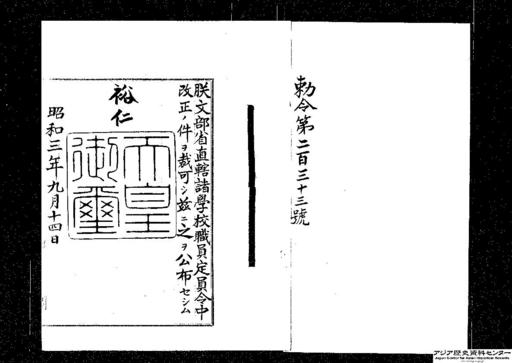 勅令第二百三十三號
朕文部省直轄諸學校職員定員令中
改正ノ件ヲ裁可シ茲ニ之ヲ公布セシム
裕仁
天皇御璽
昭和三年九月十四日
アジア歴史資料センター
Japan Center for Asian Historical Records